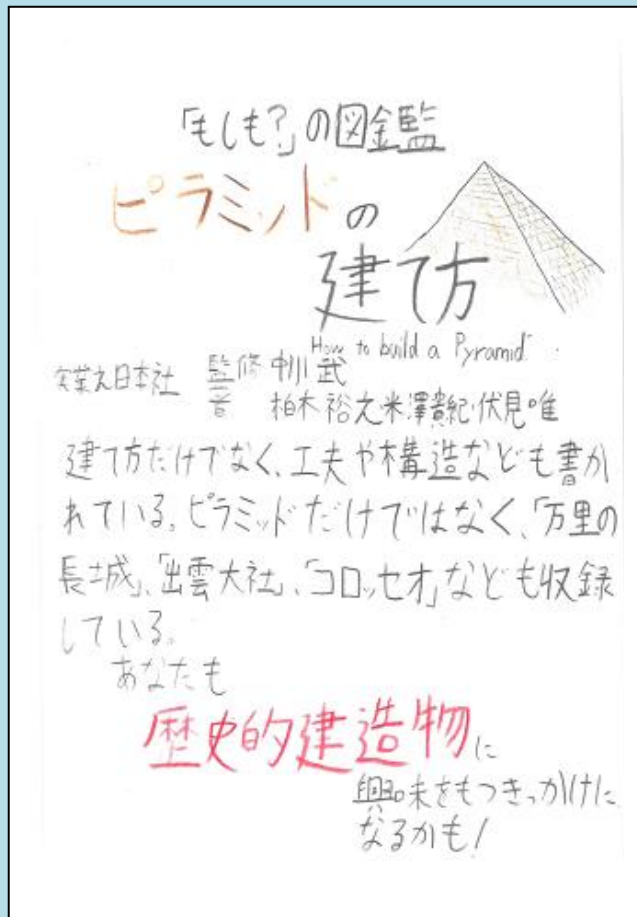 「もしも?」の図鑑
ピラミッドの
建て方
How to build a Pyramid
実業之日本社 監修 中川武
著 柏木裕之 米澤貴紀・伏見唯
建て方だけでなく、工夫や構造なども書か
れている。ピラミッドだけではなく、「万里の
長城」、「出雲大社」、「コロッセオ」なども収録
している。
あなたも
歴史的建造物に
興味をもつきっかけに
なるかも!